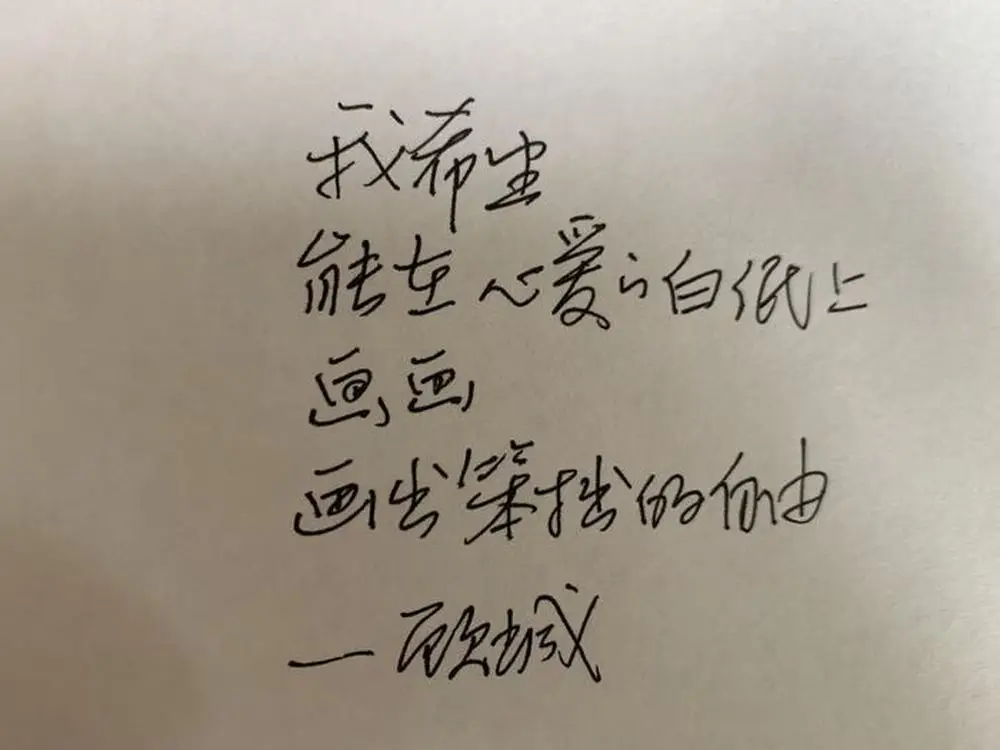 我希望
能在心爱的白纸上
画画
画出笨拙的自由
—顾城